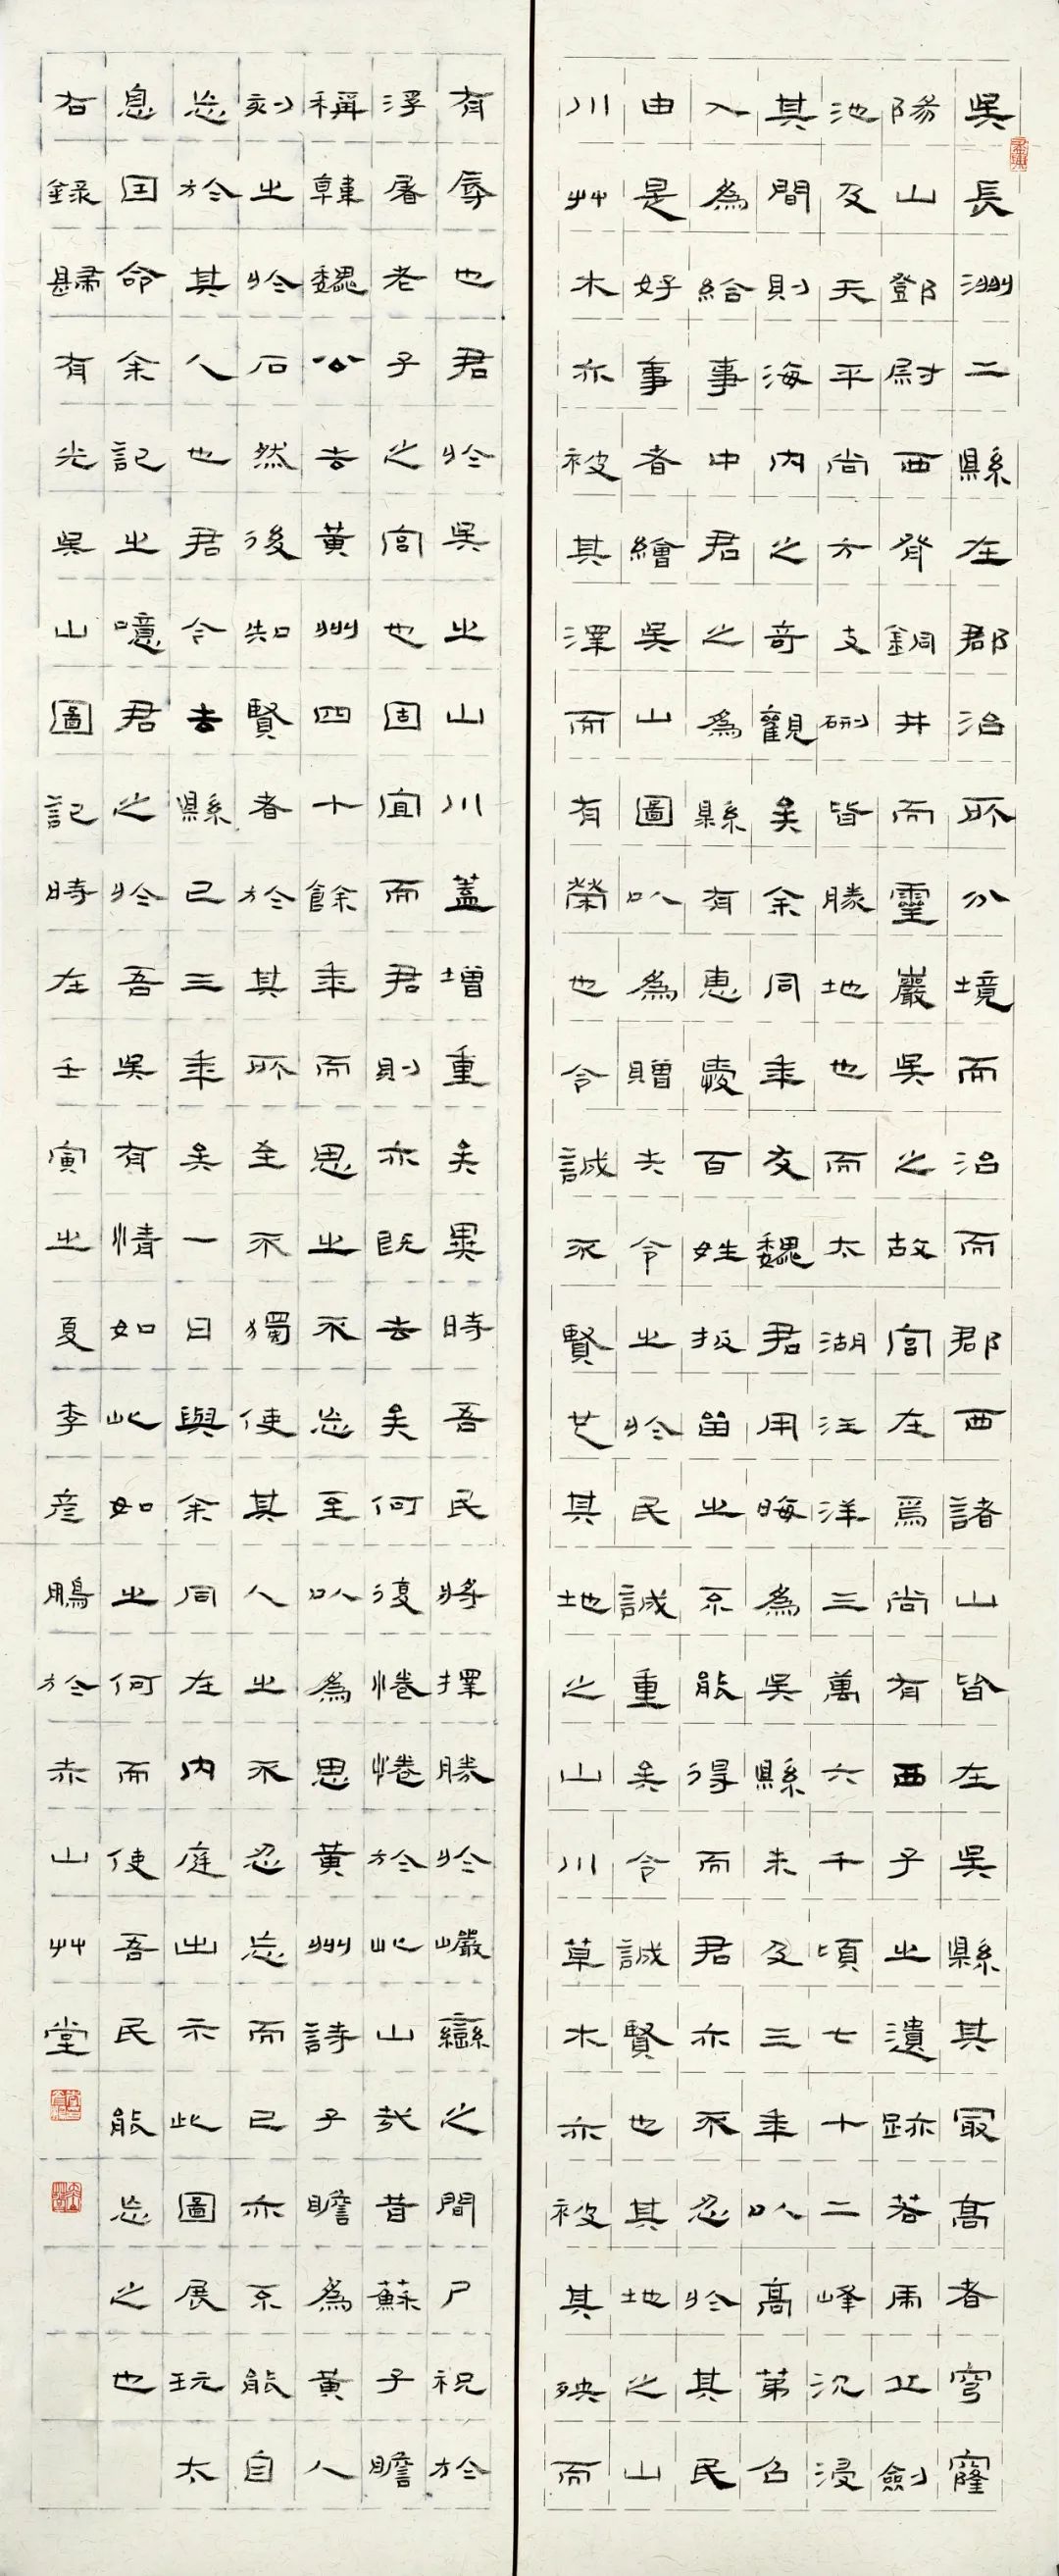 吳長洲二縣在郡治所分境而治而郡西諸山皆在吳縣其最高者穹窿
陽山鄧尉西脊銅井而靈巖吳之故宮在焉尚有西子之遺跡若虎丘劍
池及天平尚方支硎皆勝地也而太湖汪洋三萬六千頃七十二峰沉浸
其間則海內之奇觀矣余同年友魏君用晦為吳縣未及三年以高第召
入為給事中君之為縣有惠愛百姓扳留之不能得而君亦不忍於其民
由是好事者繪吳山圖以為贈夫令之於民誠重矣令誠賢也其地之山
川艸木亦被其澤而有榮也令誠不賢也其地之山川草木亦被其殃而
有辱也君於吳之山川蓋增重矣異時吾民將擇勝於巖巒之間尸祝於
浮屠老子之宮也固宜而君則亦既去矣何復惓惓於此山哉昔蘇子瞻
稱韓魏公去黃州四十餘年而思之不忘至以為思黃州詩子瞻為黃人
刻之於石然後知賢者於其所至不獨使其人之不忍忘而已亦不能自
忘於其人也君今去縣已三年矣一日與余同在內庭出示此圖展玩太
息因命余記之噫君之於吾吳有情如此如之何而使吾民能忘之也
右錄歸有光吳山圖記時在壬寅之夏李彥鵬於赤山艸堂